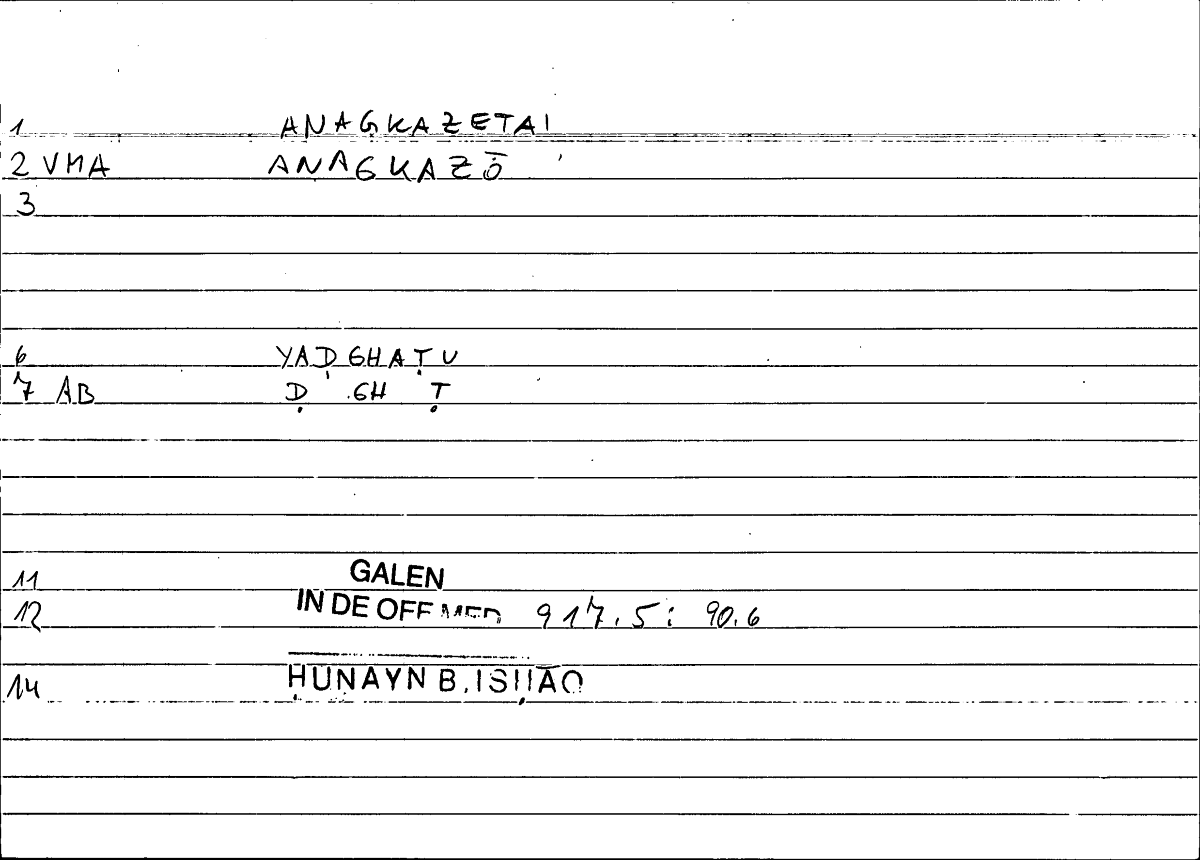 1 ANAGKAZETAI
2 VMA ANAGKAZŌ
3
6 YADGHAṬU
7 AB Ḍ GH Ṭ
11 GALEN
12 IN DE OFF MED 917.5: 90.6
14 ḤUNAYN B. ISḤĀQ